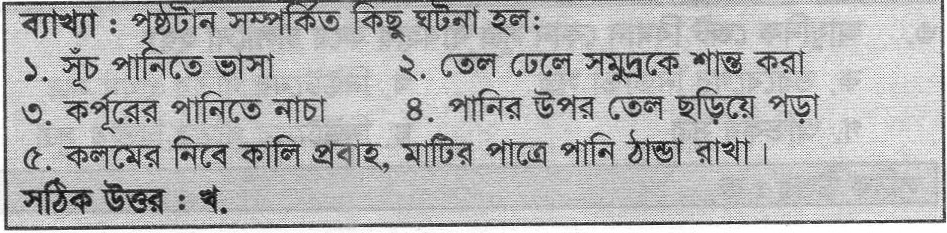 ব্যাখ্যা : পৃষ্ঠটান সম্পর্কিত কিছু ঘটনা হল:
১. সূঁচ পানিতে ভাসা ২. তেল ঢেলে সমুদ্রকে শান্ত করা
৩. কর্পূরের পানিতে নাচা ৪. পানির উপর তেল ছড়িয়ে পড়া
৫. কলমের নিবে কালি প্রবাহ, মাটির পাত্রে পানি ঠান্ডা রাখা।
সঠিক উত্তর : খ.